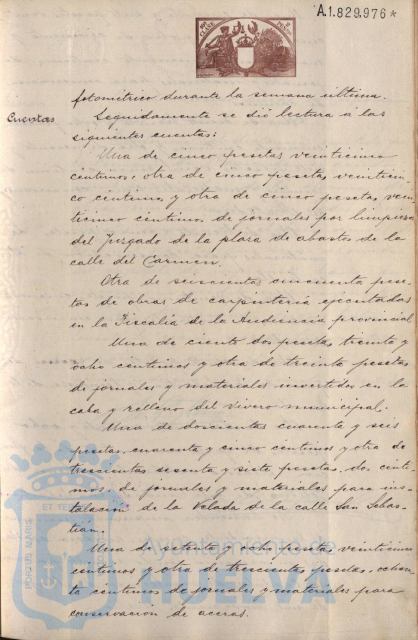 A.1.829.976*
fotométrico durante la semana última.
Cuentas
Seguidamente se dió lectura a las
siguientes cuentas:
Una de cinco pesetas veinticinco
céntimos, otra de cinco pesetas veinticin
co céntimos y otra de cinco pesetas vein
ticinco céntimos de jornales por limpieza
del Juzgado de la plaza de abastos de la
calle del Carmen.
Otra de seiscientas cincuenta pese
tas de obras de carpintería ejecutadas
en la Fiscalía de la Audiencia provincial
Una de ciento dos pesetas treinta y
ocho céntimos y otra de treinta pesetas
de jornales y materiales invertidos en la
caba y relleno del vivero municipal.
Una de doscientas cuarenta y seis
pesetas, cuarenta y cinco céntimos y otra de
trescientas sesenta y siete pesetas, dos cénti
mos, de jornales y materiales para ins
talación de la Velada de la calle San Sebas
tián.
Una de setenta y ocho pesetas, veinticinco
céntimos y otra de trescientas pesetas, ochen
ta céntimos de jornales y materiales para
conservación de aceras.
Ayuntamiento de
HUELVA